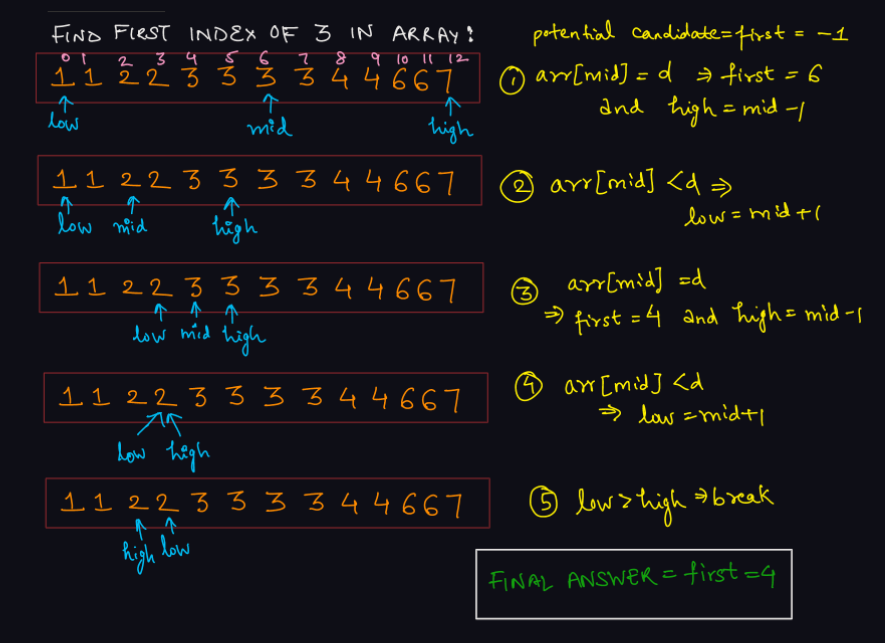 FIND FIRST INDEX OF 3 IN ARRAY:
0 1 2 3 4 5 6 7 8 9 10 11 12
1 1 2 2 3 3 3 3 4 4 6 6 7
low mid high
potential candidate = first = -1
① arr[mid] = d ⇒ first = 6
and high = mid -1
1 1 2 2 3 3 3 3 4 4 6 6 7
low mid high
② arr[mid] < d ⇒
low = mid +1
1 1 2 2 3 3 3 3 4 4 6 6 7
low mid high
③ arr[mid] = d
⇒ first = 4 and high = mid -1
1 1 2 2 3 3 3 3 4 4 6 6 7
low high
④ arr[mid] < d
⇒ low = mid+1
1 1 2 2 3 3 3 3 4 4 6 6 7
high low
⑤ low > high ⇒ break
FINAL ANSWER = first = 4